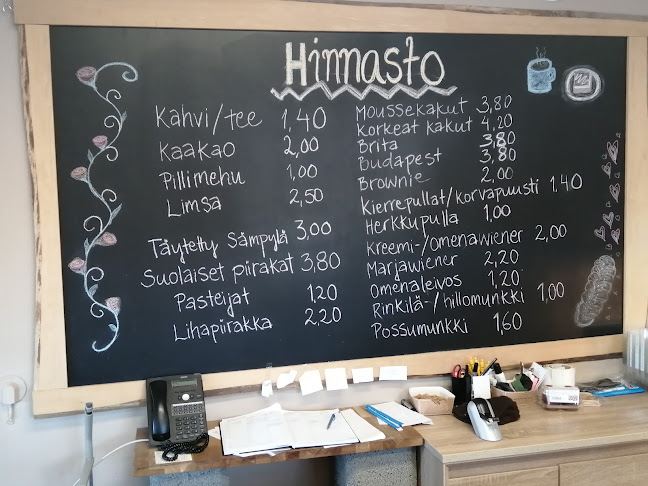 Hinnasto
Kahvi/tee 1,40
Kaakao 2,00
Pillimehu 1,00
Limsa 2,50
Täytetty Sämpylä 3,00
Suolaiset piirakat 3,80
Pasteijat 1,20
Lihapiirakka 2,20
Moussekakut 3,80
Korkeat kakut 4,20
Brita 3,80
Budapest 3,80
Brownie 2,00
Kierrepullat/korvapuusti 1,40
Herkkupulla 1,00
Kreemi-/omenawiener 2,00
Marjawiener 2,20
Omenaleivos 1,20
Rinkilä-/hillomunkki 1,00
Possumunkki 1,60